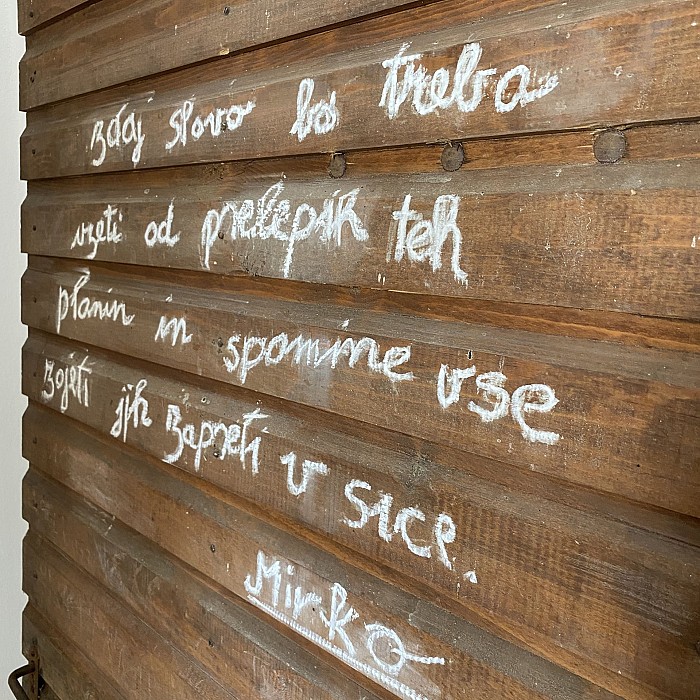 zdaj slovo bo treba
vzeti od prelepih teh
planin in spomine vse
zojeti jih zapreti v srce.
Mirko